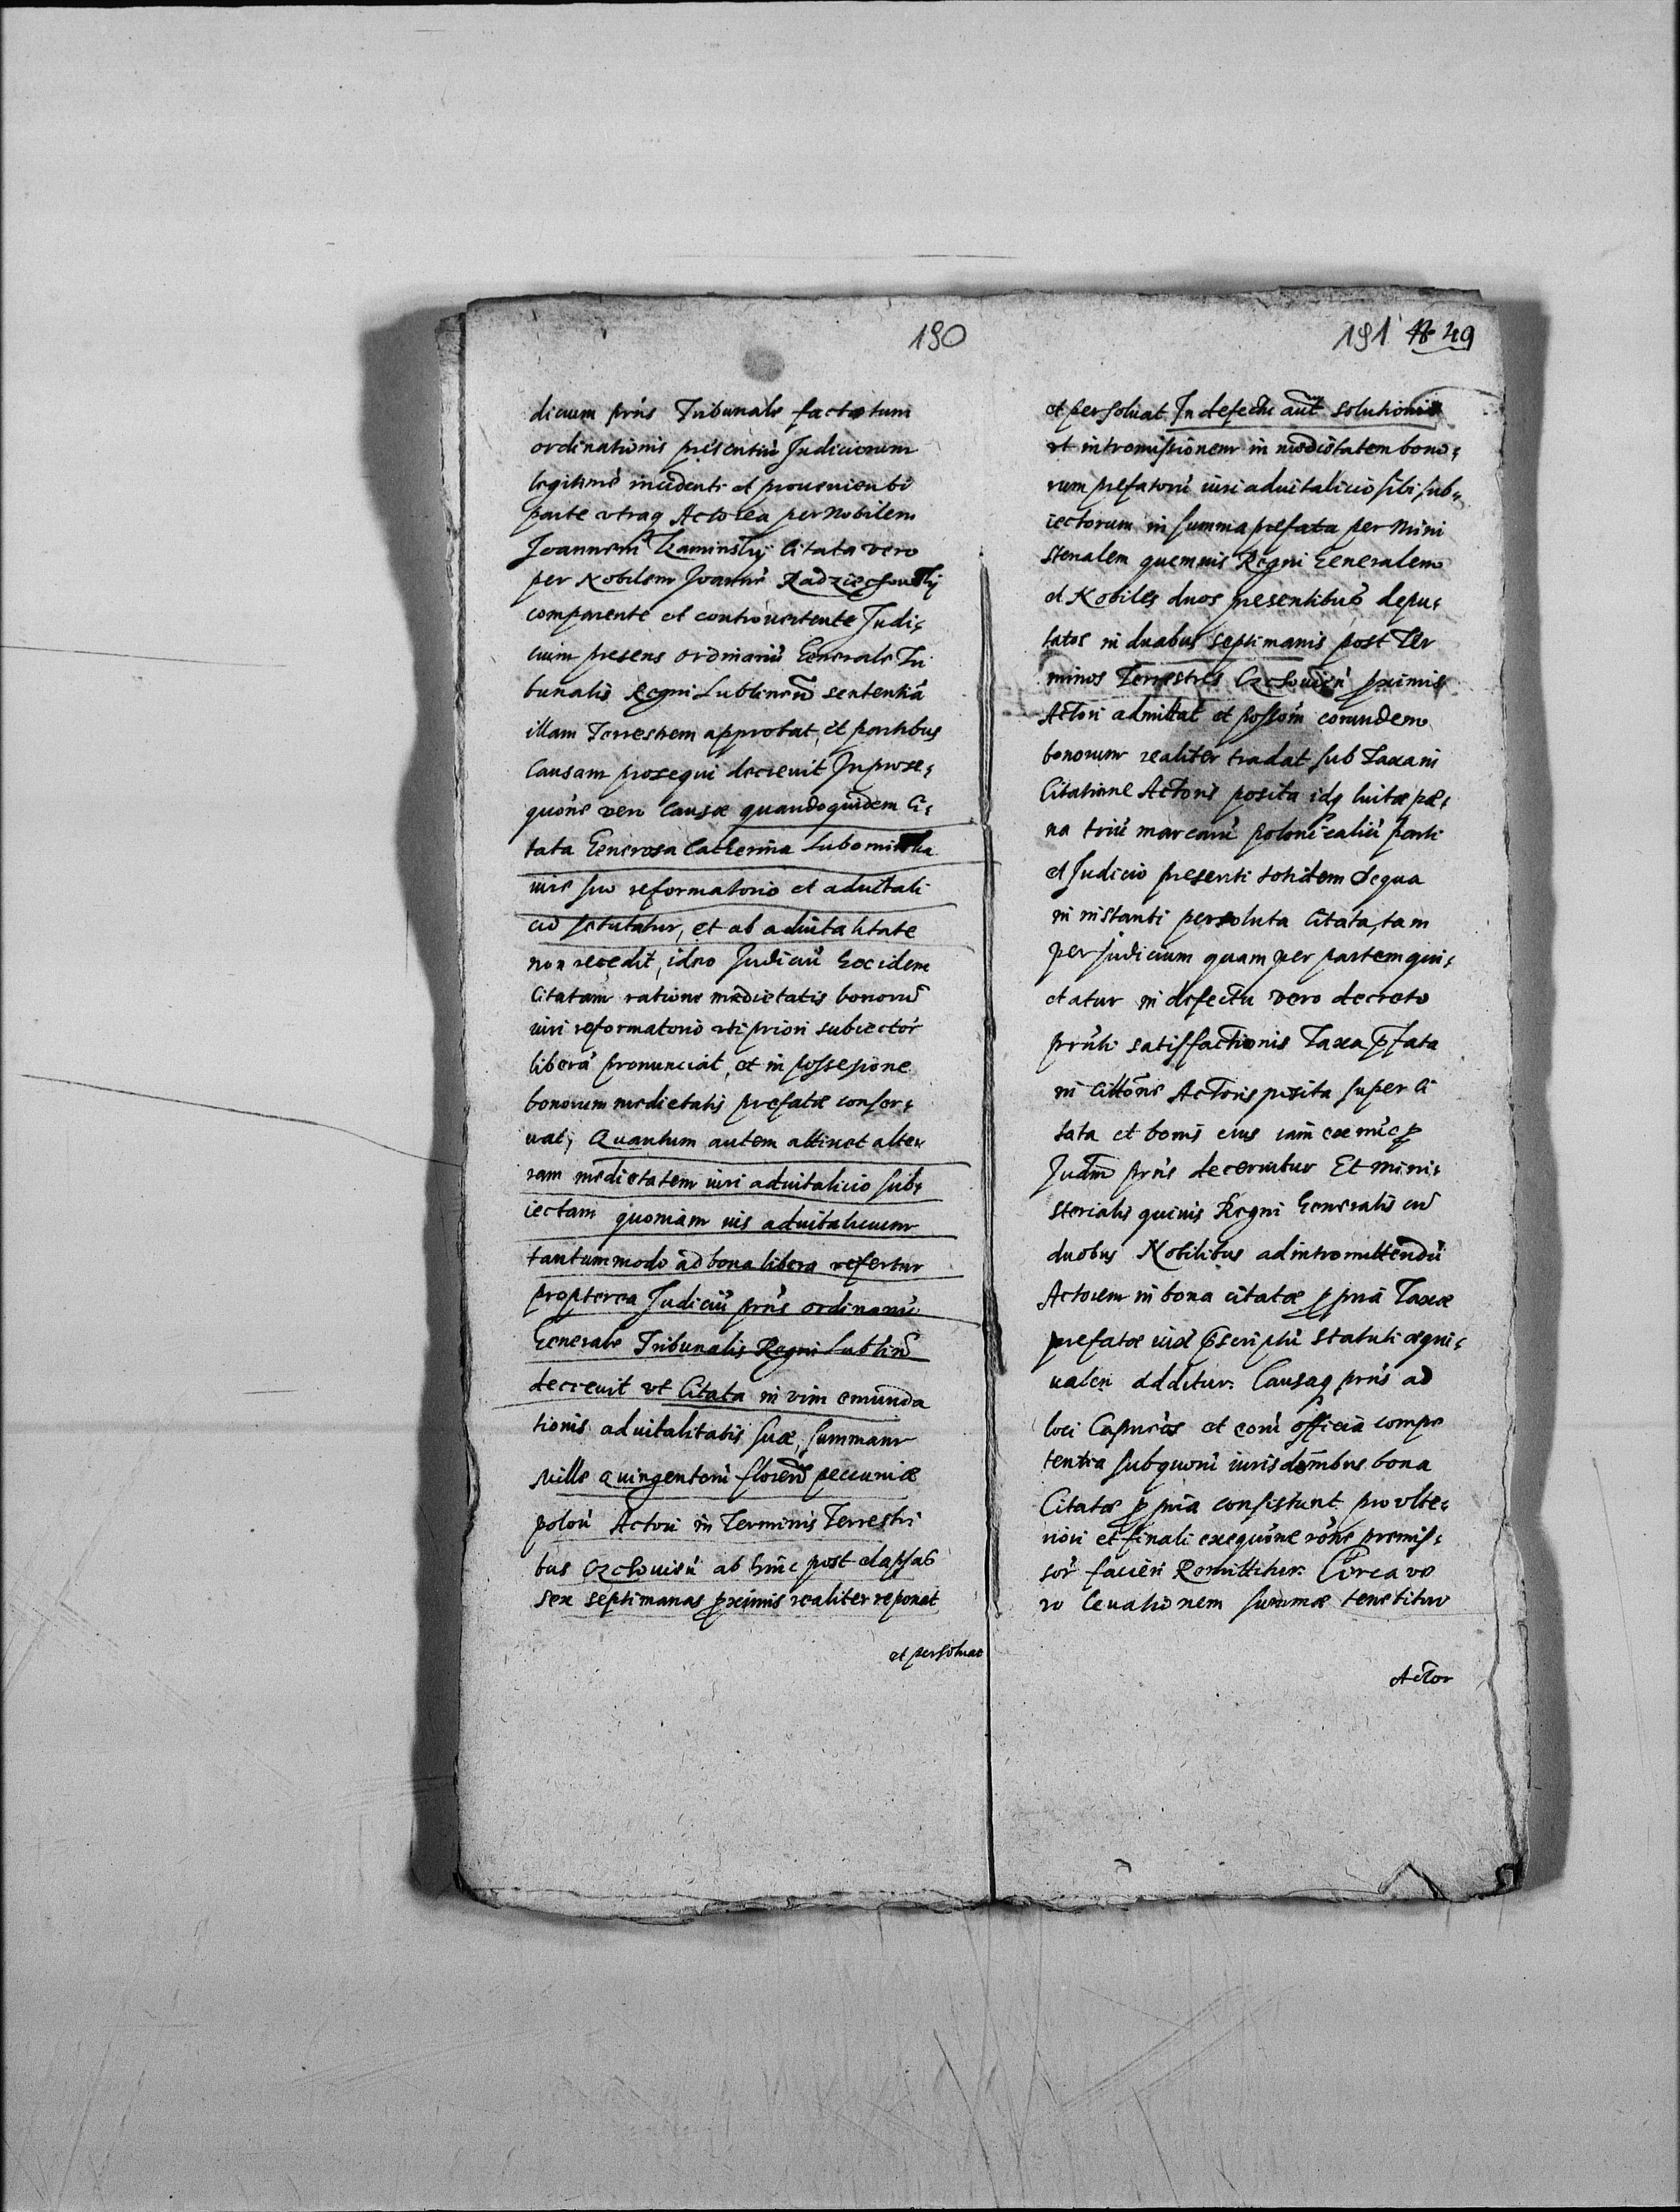 190
dicium prn̄s Tribunale factatum
ordinationis presentiū Judiciorum
legitimè incidenti et provenienti
parte utraq Actorea per Nobilem
Joannem Kaminsky Citata vero
per Nobilem Joannē Radziechowsky
comparente et controvertente Judi,
cium presens ordinariū Generale Tri
bunalis Regni Lublinen̄ sententiā
illam Terrestrem approbat, et partibus
Causam prosequi decrevit In prose,
quōne vero Causæ quandoquidem Ci,
tata Generosa Catherina Lubomirska
iure suo reformatorio et advitali
cio se tutatur, et ab advitalitate
non recedit, ideo Judiciū Eccidem
Citatam ratione medietatis bonorū
iuri reformatorio uti priori subiector̄
liberā pronunciat, et in possessione
bonorum medietatis prefatæ conser,
vat, Quantum autem attinet alter
ram medietatem iuri advitalicio sub,
iectam quoniam ius advitalicium
tantummodo ad bona libera refertur
propterea Judiciū prn̄s ordinariū
Generale Tribunalis Regni Lublinē
decrevit ut Citata in vim emunda
tionis advitalitatis suæ, summam
Mille Quingentorū florenō pecuniæ
polon̄ Actori in Terminis Terrestri
bus Czchovien̄ ab hinc post elapsas
sex septimanas proximis realiter reponat
et persolvat
191 49
et persolvat In defectu aūt solutionis
ut intromissionem in medietatem bono,
rum prefatorū iuri advitalicio sibi sub,
iectorum in summa prefata per Mini
sterialem quemvis Regni Generalem
et Nobiles duos presentibus depu,
tatos in duabus septimanis post Ter
minos Terrestres Czchovien̄ proximis
Actori admittat et possōm eorundem
bonorum realiter tradat sub Taxa in
Citatione Actoris posita idq luitæ pæ,
na triū marcarū polonicaliū parti
et Judicio presenti totidem de qua
in instanti persoluta Citata, tam
per Judicium quam per partem qui,
etatur in defectu vero decreto
prn̄ti satisfactionis Taxa pfata
in Cittōne Actoris posita super Ci
tata et bonis eius iam ex nūc p
Judm prn̄s decernitur Et Mini,
sterialis quivis Regni Generalis cū
duobus Nobilibus ad intromittendū
Actorem in bona citatæ p pnā Taxæ
prefatæ iuxᵃ pscriptū statuti æqui,
valen̄ additur. Causaq prn̄s ad
loci Capn̄eos et eorū officia compe
tentia sub quorū iurisdōmbus bona
Citatæ p pnā consistunt pro ulte,
riori et finali exequōne rōne premis,
sor̄ facien̄ Remittitur. Circa ve
ro levationem summæ tenebitur
Actor